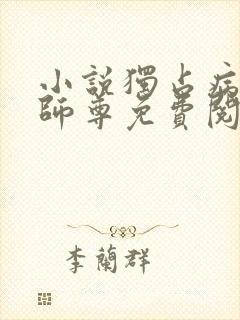 小說獨占病
師尊免費閱
李蘭群